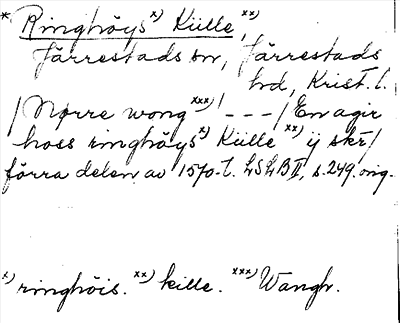 * Ringhöys x) Külle, xx)
Järrestads sn, Järrestads
hd, Krist. l.
/Nørre wong xxx) / - - - / En agir
hoss ringhöys x) Külle xx) ij skr/
förra delen av 1570-t. LSLB II, s. 249. orig.
x) ringhöis. xx) kille. xxx) Wangh.